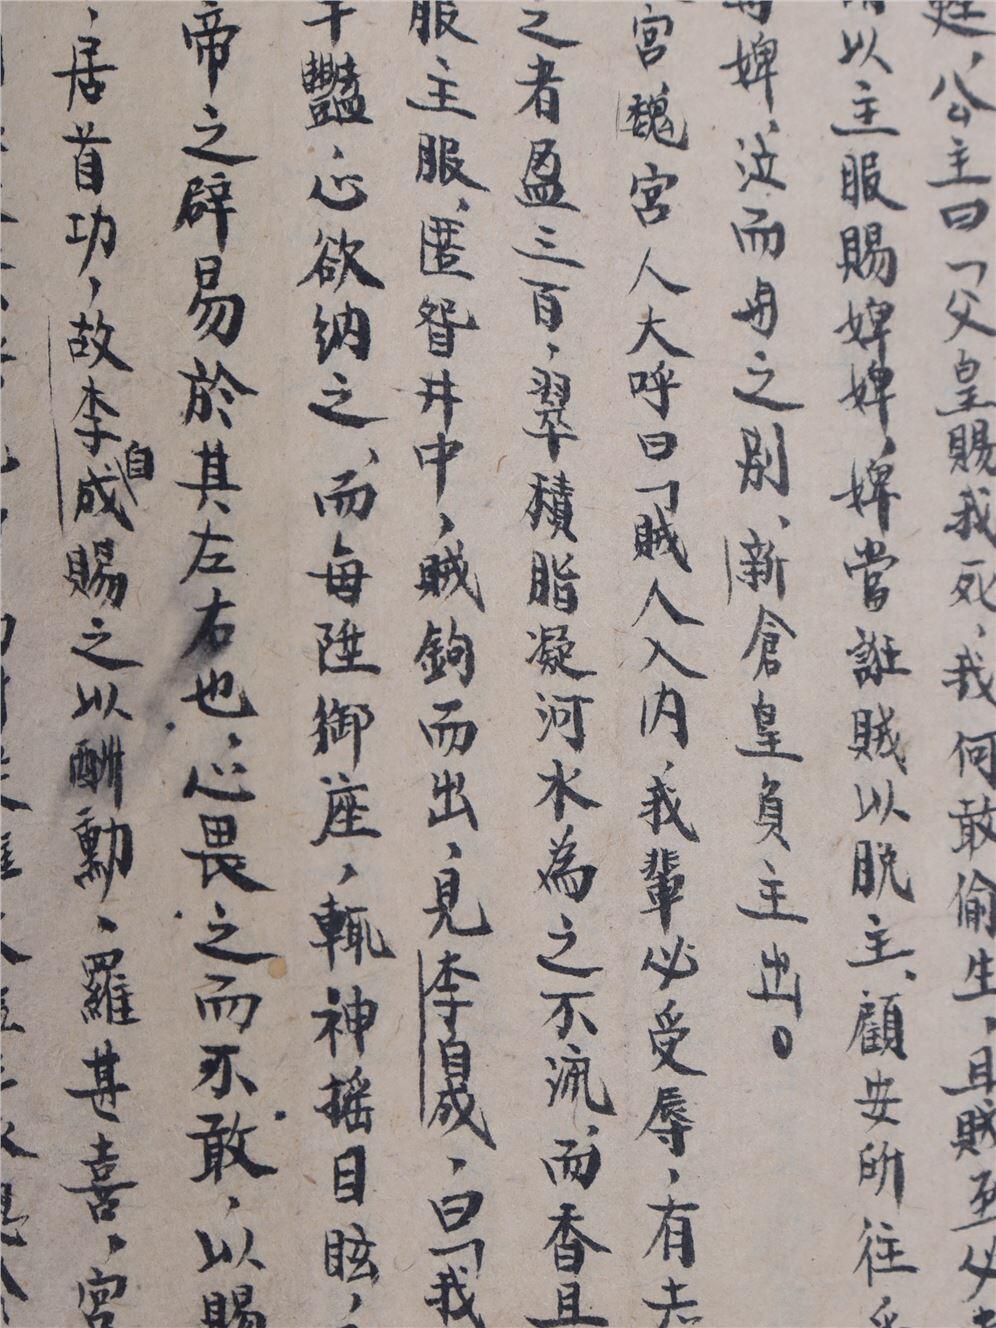 甦，公主曰「父皇賜我死，我何敢偷生，且賊至必
以主服賜婢婢，婢當誑賊以脫主、顧安所往，
婢，泣而與之別、新倉皇負主出。
宮魏宮人大呼曰「賊人入內，我輩必受辱，有志
之者盈三百，翠積脂凝河水為之不流，而香且
服主服，匿眢井中，賊鉤而出，見李自成，曰「我
豔，心欲納之，而每陞御座，輒神搖目眩，
帝之辟易於其左右也，心畏之而不敢，以賜
居首功，故李自成賜之以酬勳，羅甚喜，宮